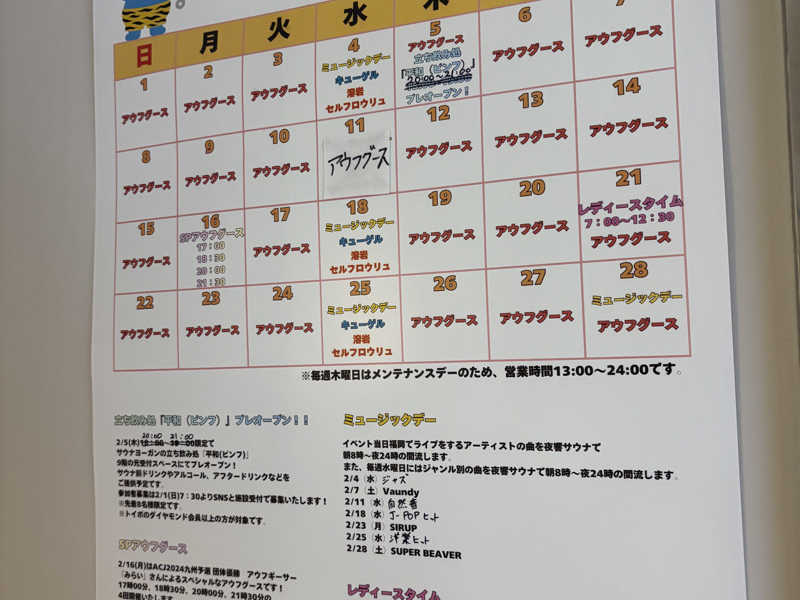 日 月 火 水 木
1
アウフグース
2
アウフグース
3
アウフグース
4
ミュージックデー
キューゲル
溶岩
セルフロウリュ
5
アウフグース
立ち飲み処
「平和（ピンフ）」
20:00〜21:00
プレオープン！
6
アウフグース
7
アウフグース
8
アウフグース
9
アウフグース
10
アウフグース
11
アウフグース
12
アウフグース
13
アウフグース
14
アウフグース
15
アウフグース
16
SPアウフグース
17：00
18：30
20：00
21：30
17
アウフグース
18
ミュージックデー
キューゲル
溶岩
セルフロウリュ
19
アウフグース
20
アウフグース
21
レディースタイム
7：00〜12：30
アウフグース
22
アウフグース
23
アウフグース
24
アウフグース
25
ミュージックデー
キューゲル
溶岩
セルフロウリュ
26
アウフグース
27
アウフグース
28
ミュージックデー
アウフグース
※毎週木曜日はメンテナンスデーのため、営業時間13:00〜24:00です。
立ち飲み処「平和（ピンフ）」プレオープン！！
20:00 21:00
2/5(木)限定で
サウナヨーガンの立ち飲み処「平和(ピンフ)」
9階の元受付スペースにてプレオープン！
サウナ前ドリンクやアルコール、アフタードリンクなどを
ご提供予定です。
参加者募集は2/1(日)7：30よりSNSと施設受付で募集いたします！
※先着8名様限定です。
※トイポのダイヤモンド会員以上の方が対象です。
SPアウフグース
2/16(月)はACJ2024九州予選 団体優勝 アウフギーサー
「みらい」さんによるスペシャルなアウフグースです！
17時00分、18時30分、20時00分、21時30分の
4回開催いたします。
ミュージックデー
イベント当日福岡でライブをするアーティストの曲を夜響サウナで
朝8時〜夜24時の間流します。
また、毎週水曜日にはジャンル別の曲を夜響サウナで朝8時〜夜24時の間流します。
2/4（水）ジャズ
2/7（土）Vaundy
2/11（水）自然音
2/18（水）J-POPヒット
2/23（月）SIRUP
2/25（水）洋楽ヒット
2/28（土）SUPER BEAVER
レディースタイム